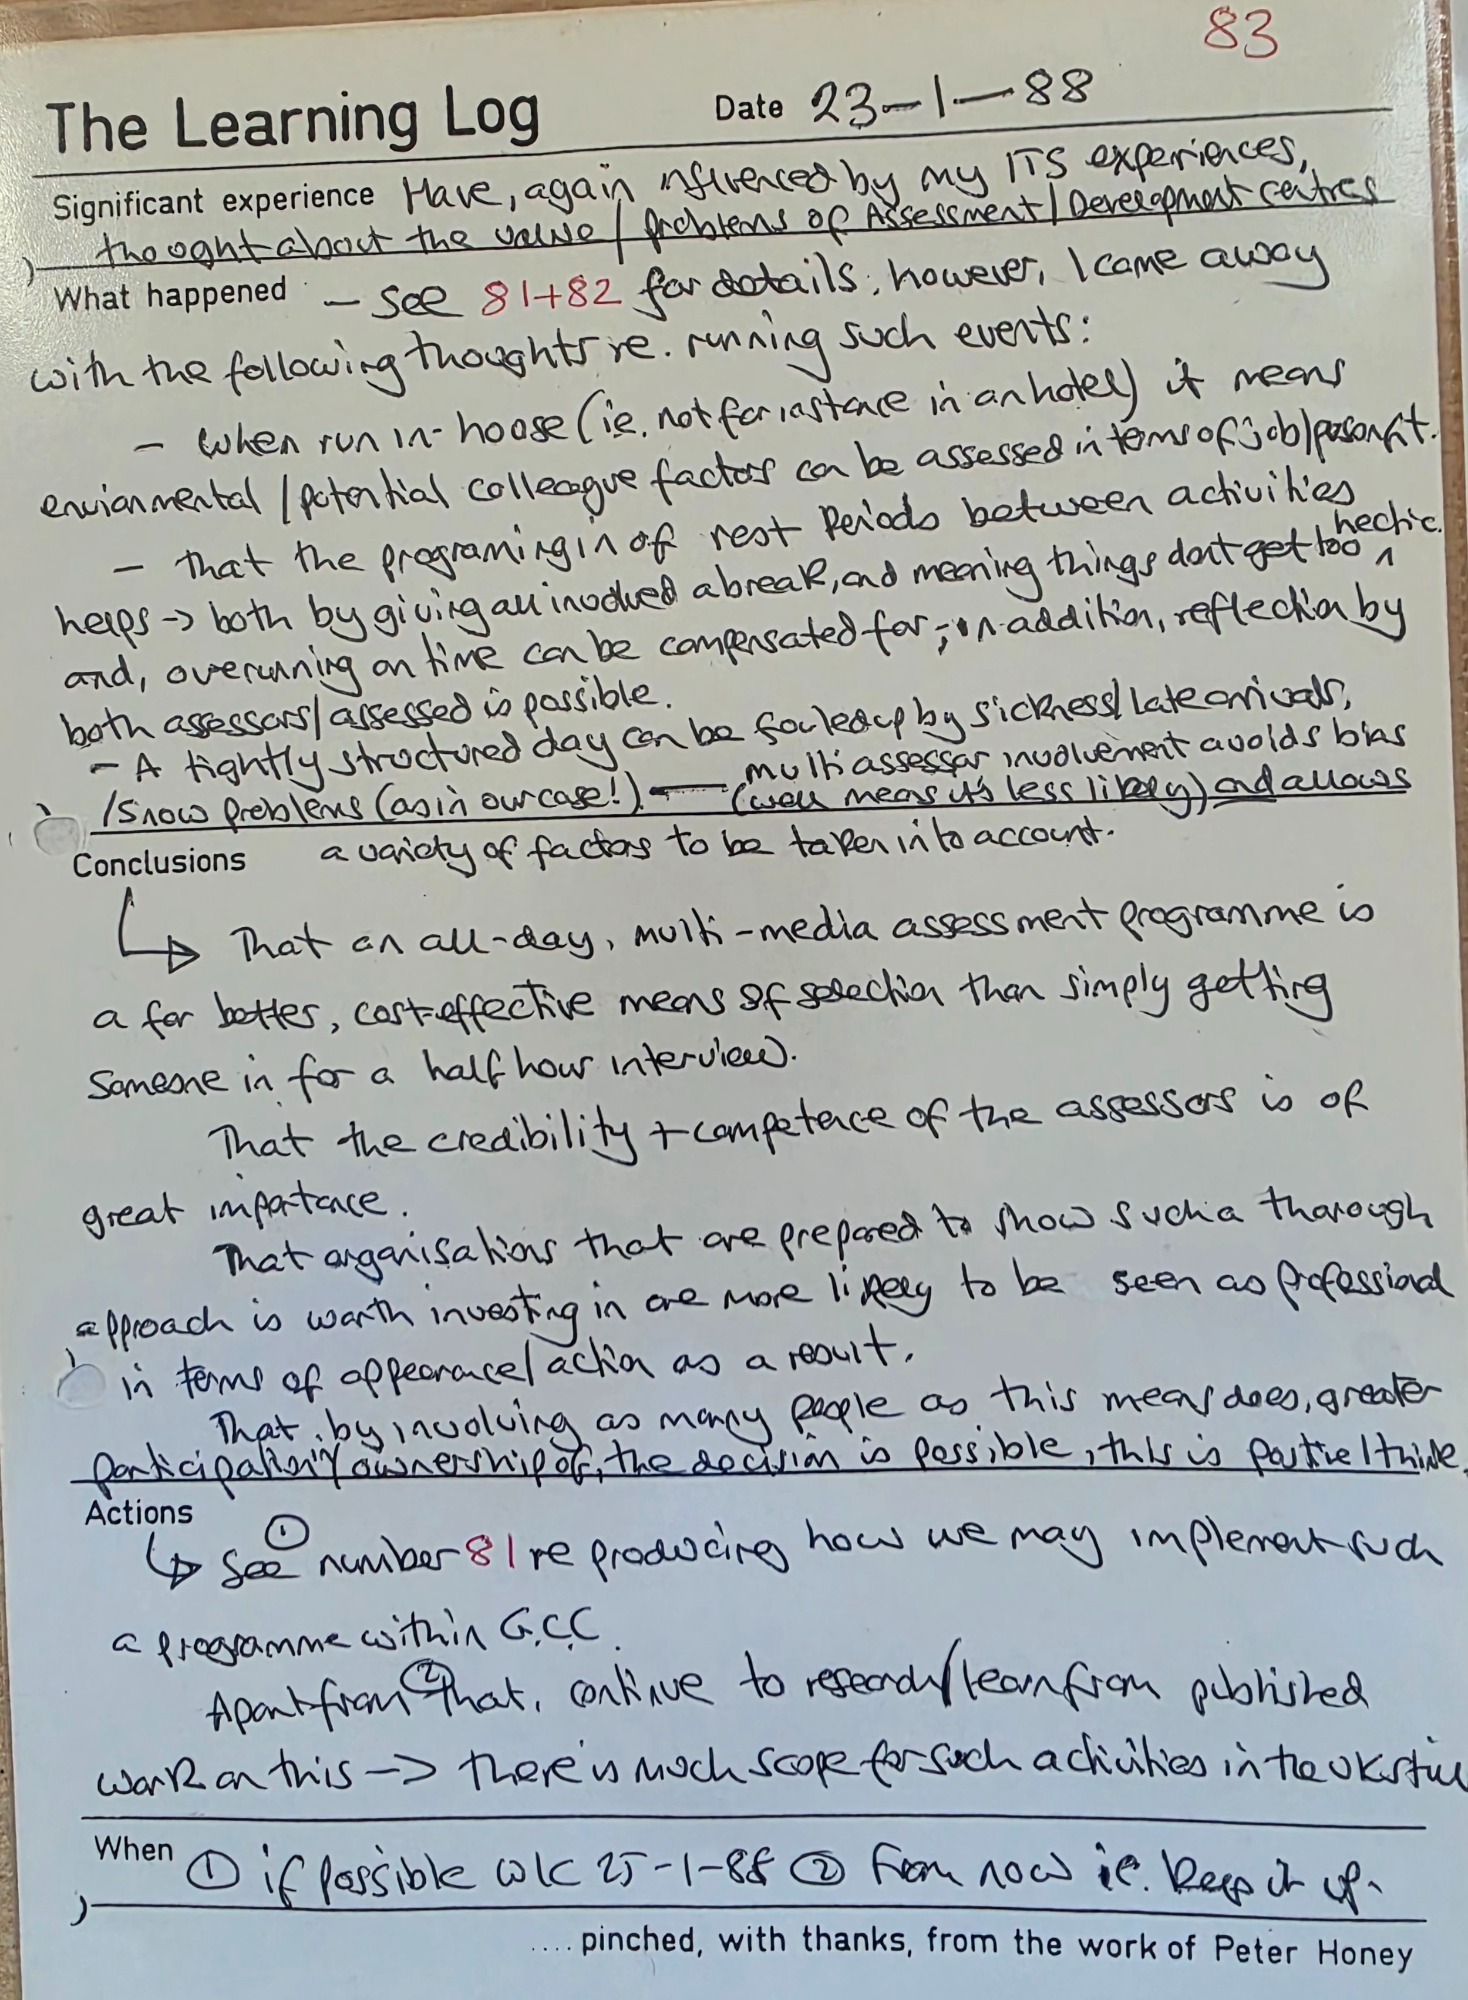 83
The Learning Log Date 23-1-88
Significant experience Have, again influenced by my ITS experiences,
thought about the value / problems of Assessment / Development centres
What happened - see 81+82 for details; however, I came away
with the following thoughts re. running such events:
- When run in-house (ie. not for instance in an hotel) it means
environmental / potential colleague factors can be assessed in terms of job/person fit.
- That the programing in of rest periods between activities
helps -> both by giving all involved a break, and meaning things don't get too hectic.
and, overrunning on time can be compensated for; in addition, reflection by
both assessors/assessed is possible.
- A tightly structured day can be fouled up by sickness/late arrivals,
/snow problems (as in our case!). - multi assessor involvement avoids bias
(well means it's less likely) and allows
Conclusions a variety of factors to be taken into account.
That an all-day, multi-media assessment programme is
a far better, cost-effective means of selection than simply getting
someone in for a half hour interview.
That the credibility + competence of the assessors is of
great importance.
That organisations that are prepared to show such a thorough
approach is worth investing in are more likely to be seen as professional
in terms of appearance/action as a result.
That, by involving as many people as this means does, greater
participation in/ownership of, the decision is possible, this is positive I think.
Actions
① See number 81 re producing how we may implement such
a programme within G.C.C.
② Apart from that, continue to research/learn from published
work on this -> there is much scope for such activities in the UK still
When ① if possible w/c 25-1-88 ② From now ie. keep it up.
.... pinched, with thanks, from the work of Peter Honey